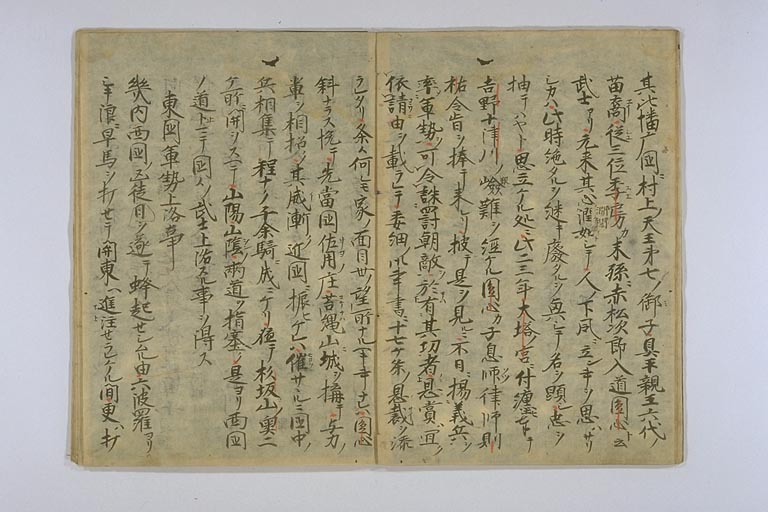 其比播磨国村上天王第七ノ御子具平親王六代
苗裔従三位季房カ末孫赤松次郎入道円心ト云
武士アリ元来其心濶如トシテ人ノ下風ニ立ン事ヲ思ハサリ
シカハ此時絶タルヲ継キ廃タルヲ興シテ名ヲ顕シ忠ヲ
抽テハヤト思立ケル処ニ此二三年大塔ノ宮ニ付纏奉テ
吉野十津川ノ嶮難ヲ経ケル円心カ子息師律師則
祐令旨ヲ捧テ来レリ披テ是ヲ見ルニ不日ニ揚義兵ヲ
率軍勢ヲ可令誅罰朝敵ヲ於有其功者恩賞宜ク
依請由ヲ載ラレテ委細ノ事書十七ケ条ノ恩裁ヲ流
ラレタリ条々何レモ家ノ面目世ノ望所ナル事ナレハ円心
斜ナラス悦テ先当国佐用庄苔縄山城ヲ構テ与力ノ
輩ヲ相招ク其威漸ク近国ニ振ヒケレハ催サルヽニ国中ノ
兵相集テ程ナク千余騎ニ成ニケリ種テ杉坂山ノ奥二
ケ所ニ関ヲスヘテ山陽山陰ノ両道ヲ指塞ク是ヨリ西国
ノ道止テ国々ノ武士上洛スル事ヲ得ス
東国軍勢上洛事
畿内西国ノ凶徒日ヲ逐テ蜂起セシムル由六波羅ヨリ
シキ浪ノ早馬ヲ打セテ関東ヘ進注セラレケル間更ハ打